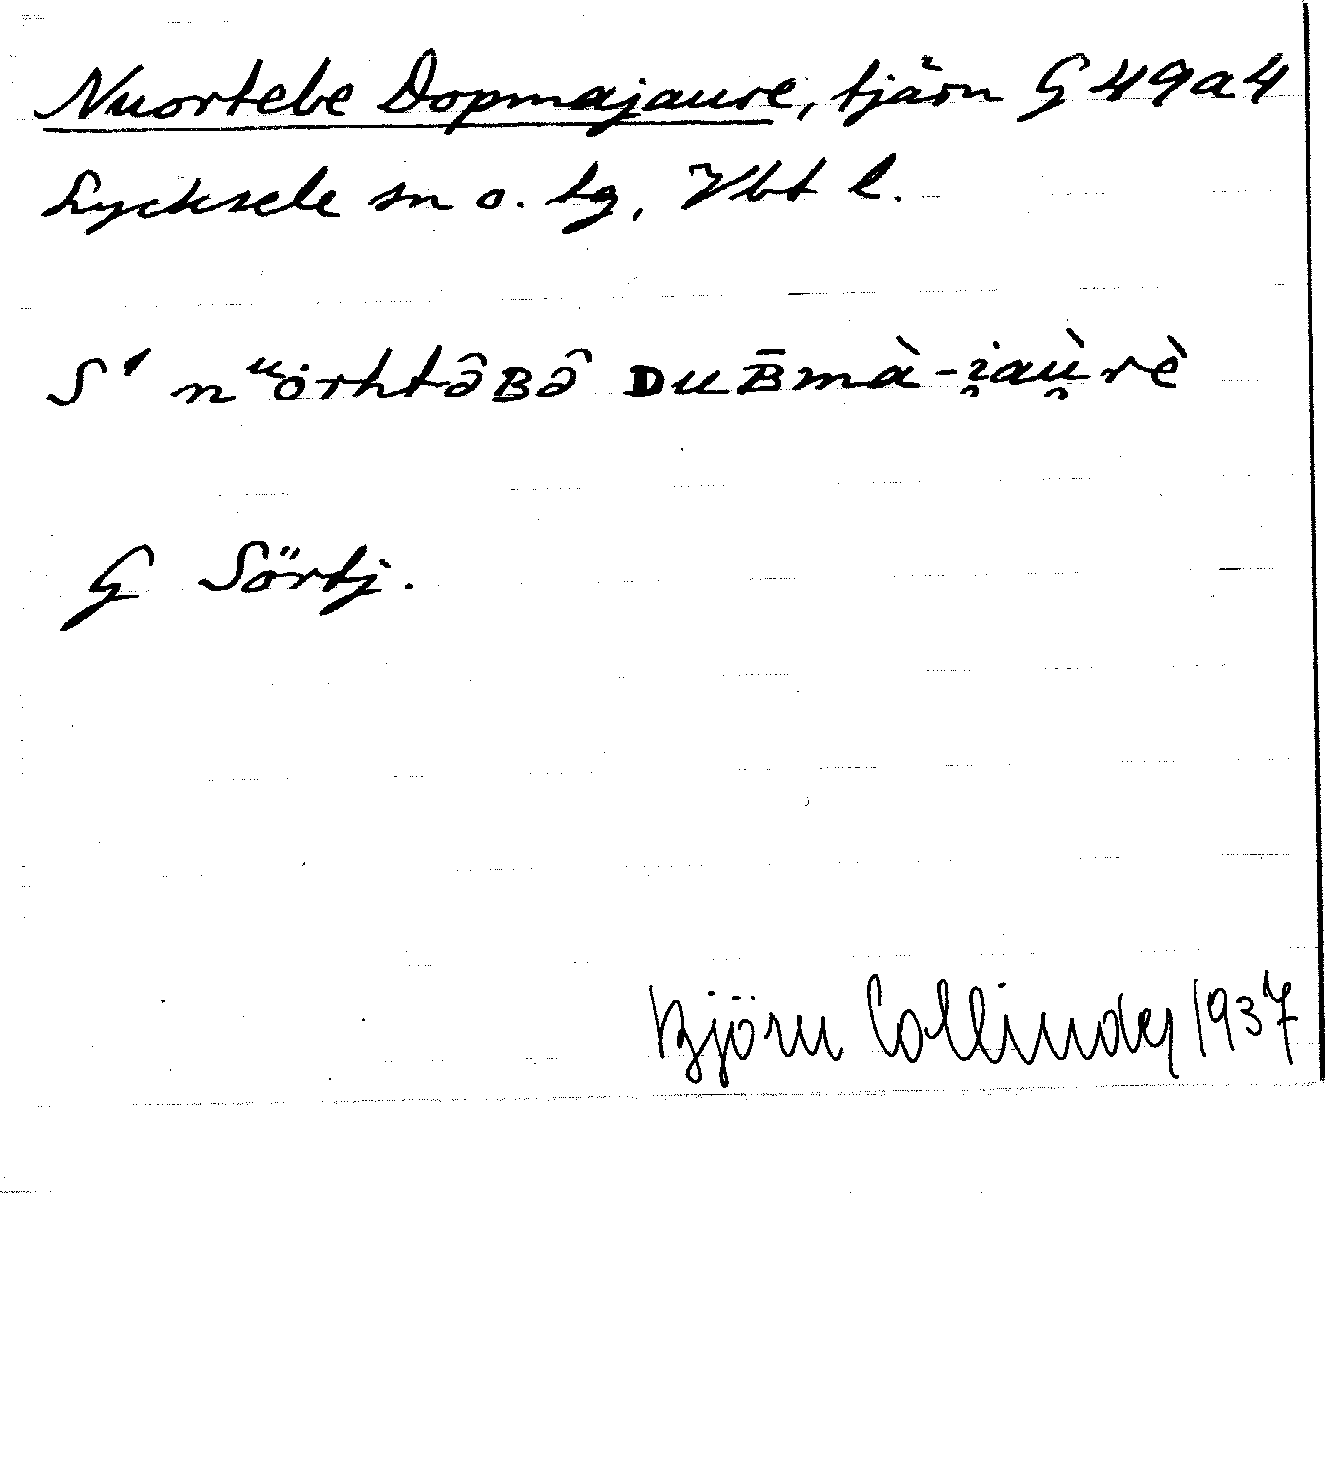 Nuortebe Dopmajaure, tjärn G 49a4
Lycksele sn o. tg, Vbt l.
S' nᵘȯrhtə̂ʙə̂ ᴅuʙ̄mà-i̯aù̯rè
G Sörtj.
Björn Collinder 1937